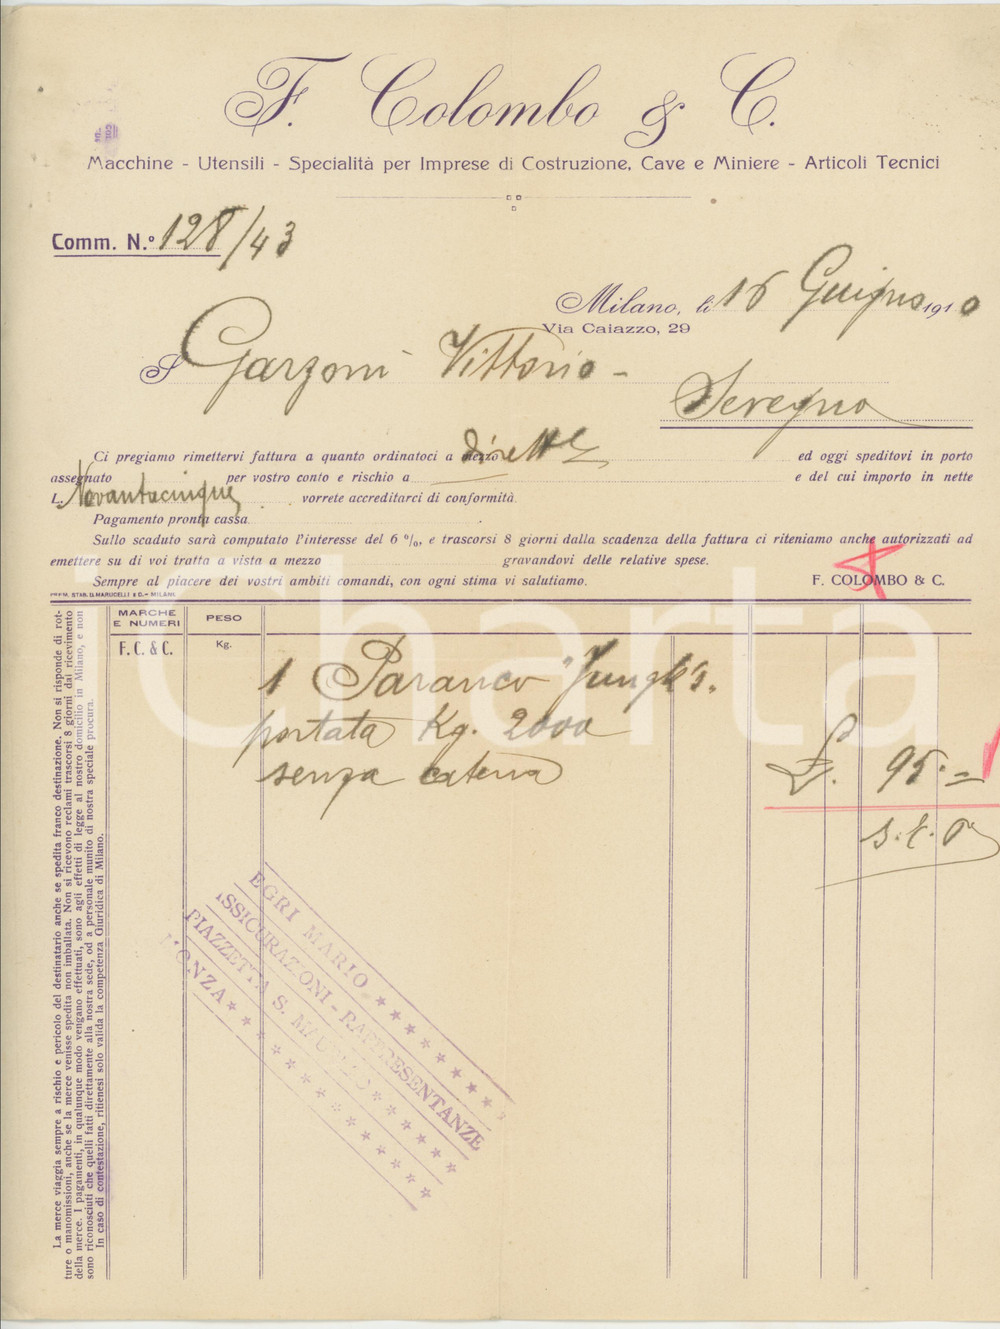 F. Colombo & C.
Macchine - Utensili - Specialità per Imprese di Costruzione, Cave e Miniere - Articoli Tecnici
Comm. N.º 128/43
Milano, li 16 Giugno 1910
Via Caiazzo, 29
S Garzoni Vittorio -
Seregno
Ci pregiamo rimettervi fattura a quanto ordinatoci a mezzo ed oggi speditovi in porto
assegnato per vostro conto e rischio a e del cui importo in nette
L. Novantacinque vorrete accreditarci di conformità.
Pagamento pronta cassa.
Sullo scaduto sarà computato l'interesse del 6 %, e trascorsi 8 giorni dalla scadenza della fattura ci riteniamo anche autorizzati ad
emettere su di voi tratta a vista a mezzo gravandovi delle relative spese.
Sempre al piacere dei vostri ambiti comandi, con ogni stima vi salutiamo. F. COLOMBO & C.
PREM. STAB. D. MARUCELLI & C. - MILANO
MARCHE
E NUMERI
PESO
F. C. & C.
Kg.
1 Paranco "Jungk's.
portata Kg. 2000
senza catena
£. 95.=
La merce viaggia sempre a rischio e pericolo del destinatario anche se spedita franco destinazione. Non si risponde di rot-
ture o manomissioni, anche se la merce venisse spedita non imballata. Non si ricevono reclami trascorsi 8 giorni dal ricevimento
della merce. I pagamenti, in qualunque modo vengano effettuati, sono agli effetti di legge al nostro domicilio in Milano, e non
sono riconosciuti che quelli fatti direttamente alla nostra sede, od a personale munito di nostra speciale procura.
In caso di contestazione, ritienesi solo valida la competenza Giuridica di Milano.
EGRI MARIO
ASSICURAZIONI - RAPPRESENTANZE
PIAZZETTA S. MAURIZIO
MONZA
Charta